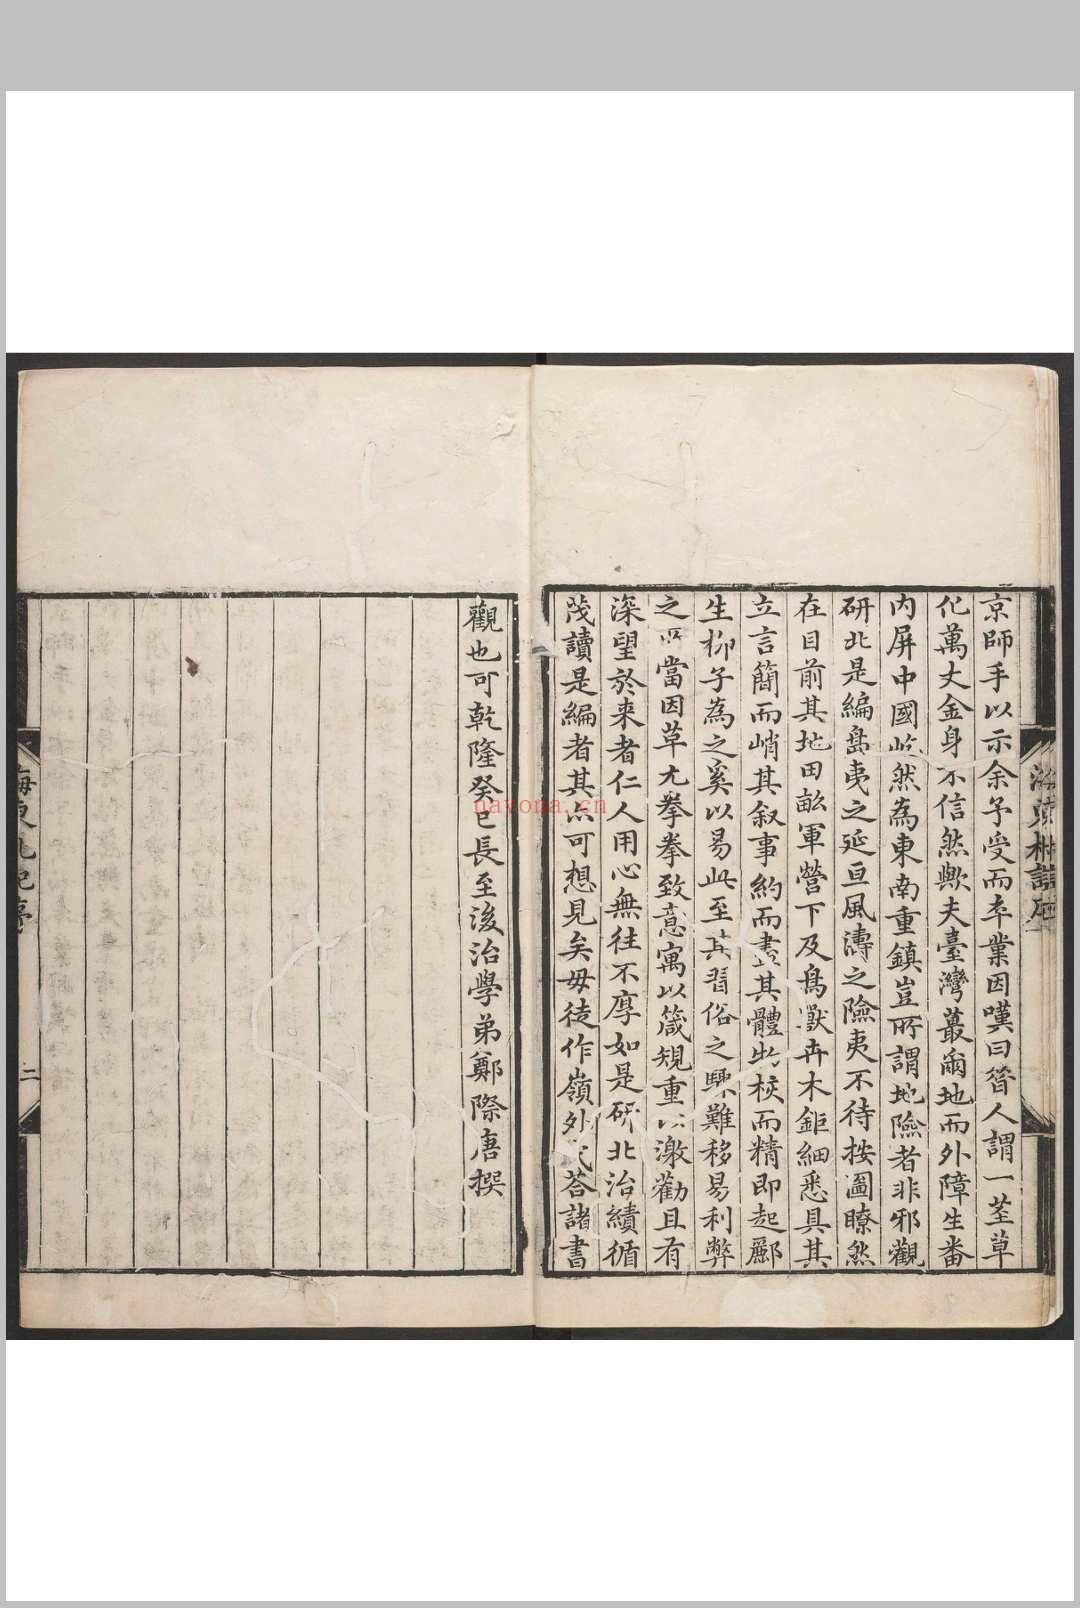 京師手以示余予受而卒業因嘆曰簪人謂一莖草
化萬丈金身不信然歟夫臺灣蕞爾地而外障生番
内屏中國屹然為東南重鎮豈所謂地險者非邪觀
研北是編島夷之延亘風濤之險夷不待按圖瞭然
在目前其地田畝軍營下及鳥獸卉木鉅細悉具其
立言簡而峭其叙事約而盡其體龙棪而精即起酈
生柳子為之奚以易此至其習俗之騐難移易利弊
之當因草尤拳拳致意寓以箴規重以激勸且有
深望於来者仁人用心無往不厚如是研北治績循
茂讀是編者其亦可想見矣毋徒作嶺外代荅諸書
觀也可乾隆癸巳長至後治學弟鄭際唐撰
二
nayona.cn